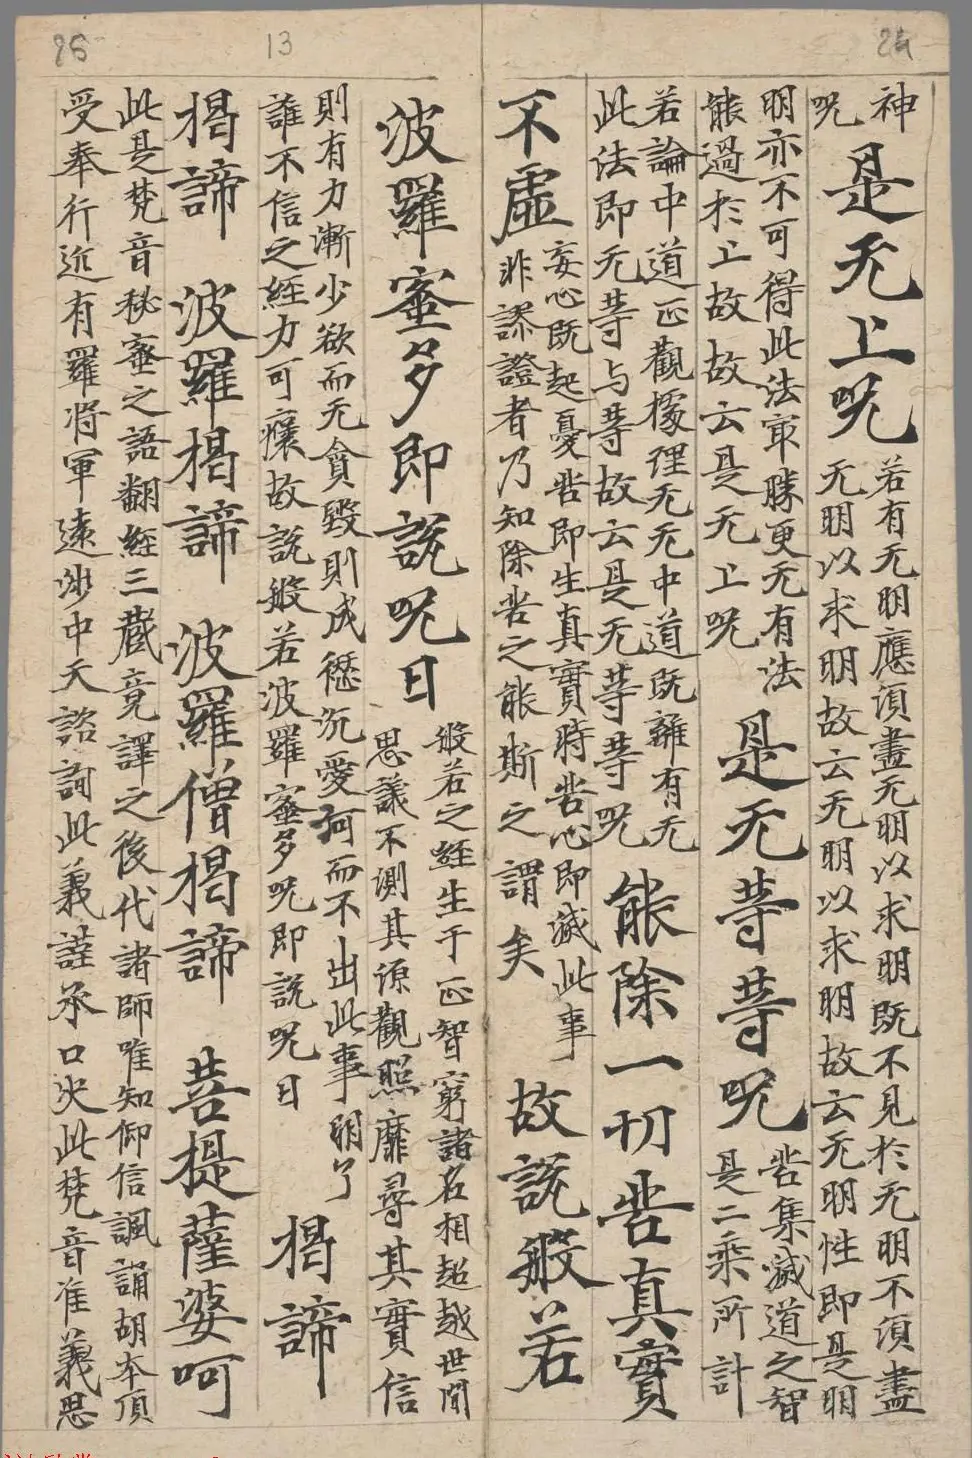 26
13
神
呪
是无上呪
若有无明應須盡无明以求明既不見於无明不須盡
无明以求明故云无明以求明故云无明性即是明
明亦不可得此法寂勝更无有法
能過於上故故云是无上呪
是无等等呪
苦集滅道之智
是二乘所計
若論中道正觀據理无无中道既離有无
此法即无等与等故云是无等等呪
能除一切苦真實
不虛
妄心既起憂苦即生真實時苦心即滅此事
非謬證者乃知除苦之能斯之謂矣
故說般若
波羅蜜多即說呪曰
般若之經生于正智窮諸名相超越世間
思議不測其源觀照靡尋其實信
則有力漸少欲而无貪毀則成𠎝沉愛河而不出此事明了
誰不信之經力可穰故說般若波羅蜜多呪即說呪曰
揭諦
揭諦 波羅揭諦 波羅僧揭諦 菩提薩婆呵
此是梵音秘蜜之語翻經三藏竟譯之後代諸師唯知仰信諷誦胡本頂
受奉行近有羅將軍遠涉中天諮詢此義謹承口決此梵音准義思